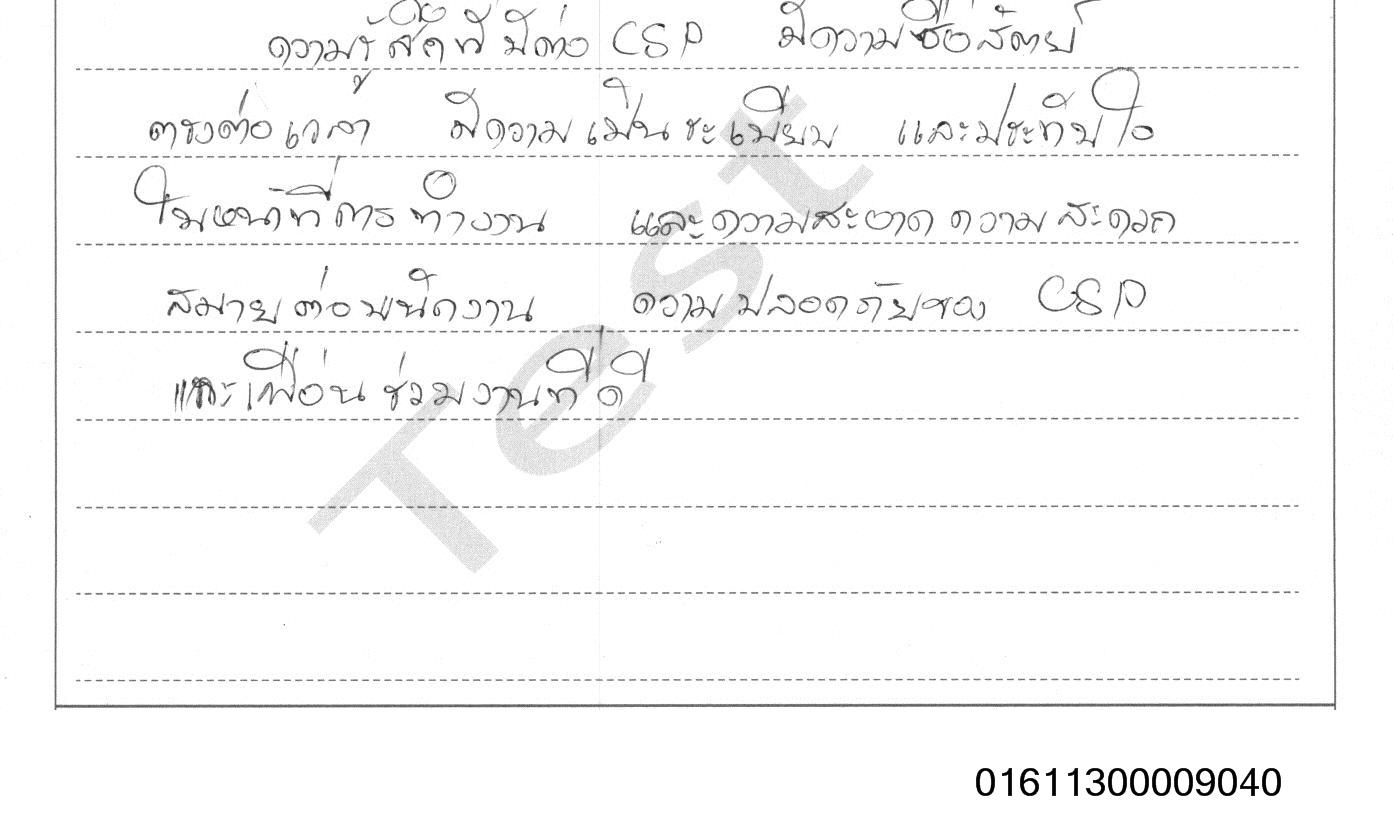 ความรู้สึกที่มีต่อ CSP มีความซื่อสัตย์
ตรงต่อเวลา มีความเป็นระเบียบ และประทับใจ
ในหน้าที่การทำงาน และความสะอาด ความสะดวก
สบายต่อพนักงาน ความปลอดภัยของ CSP
และเพื่อนร่วมงานที่ดี
Test
01611300009040